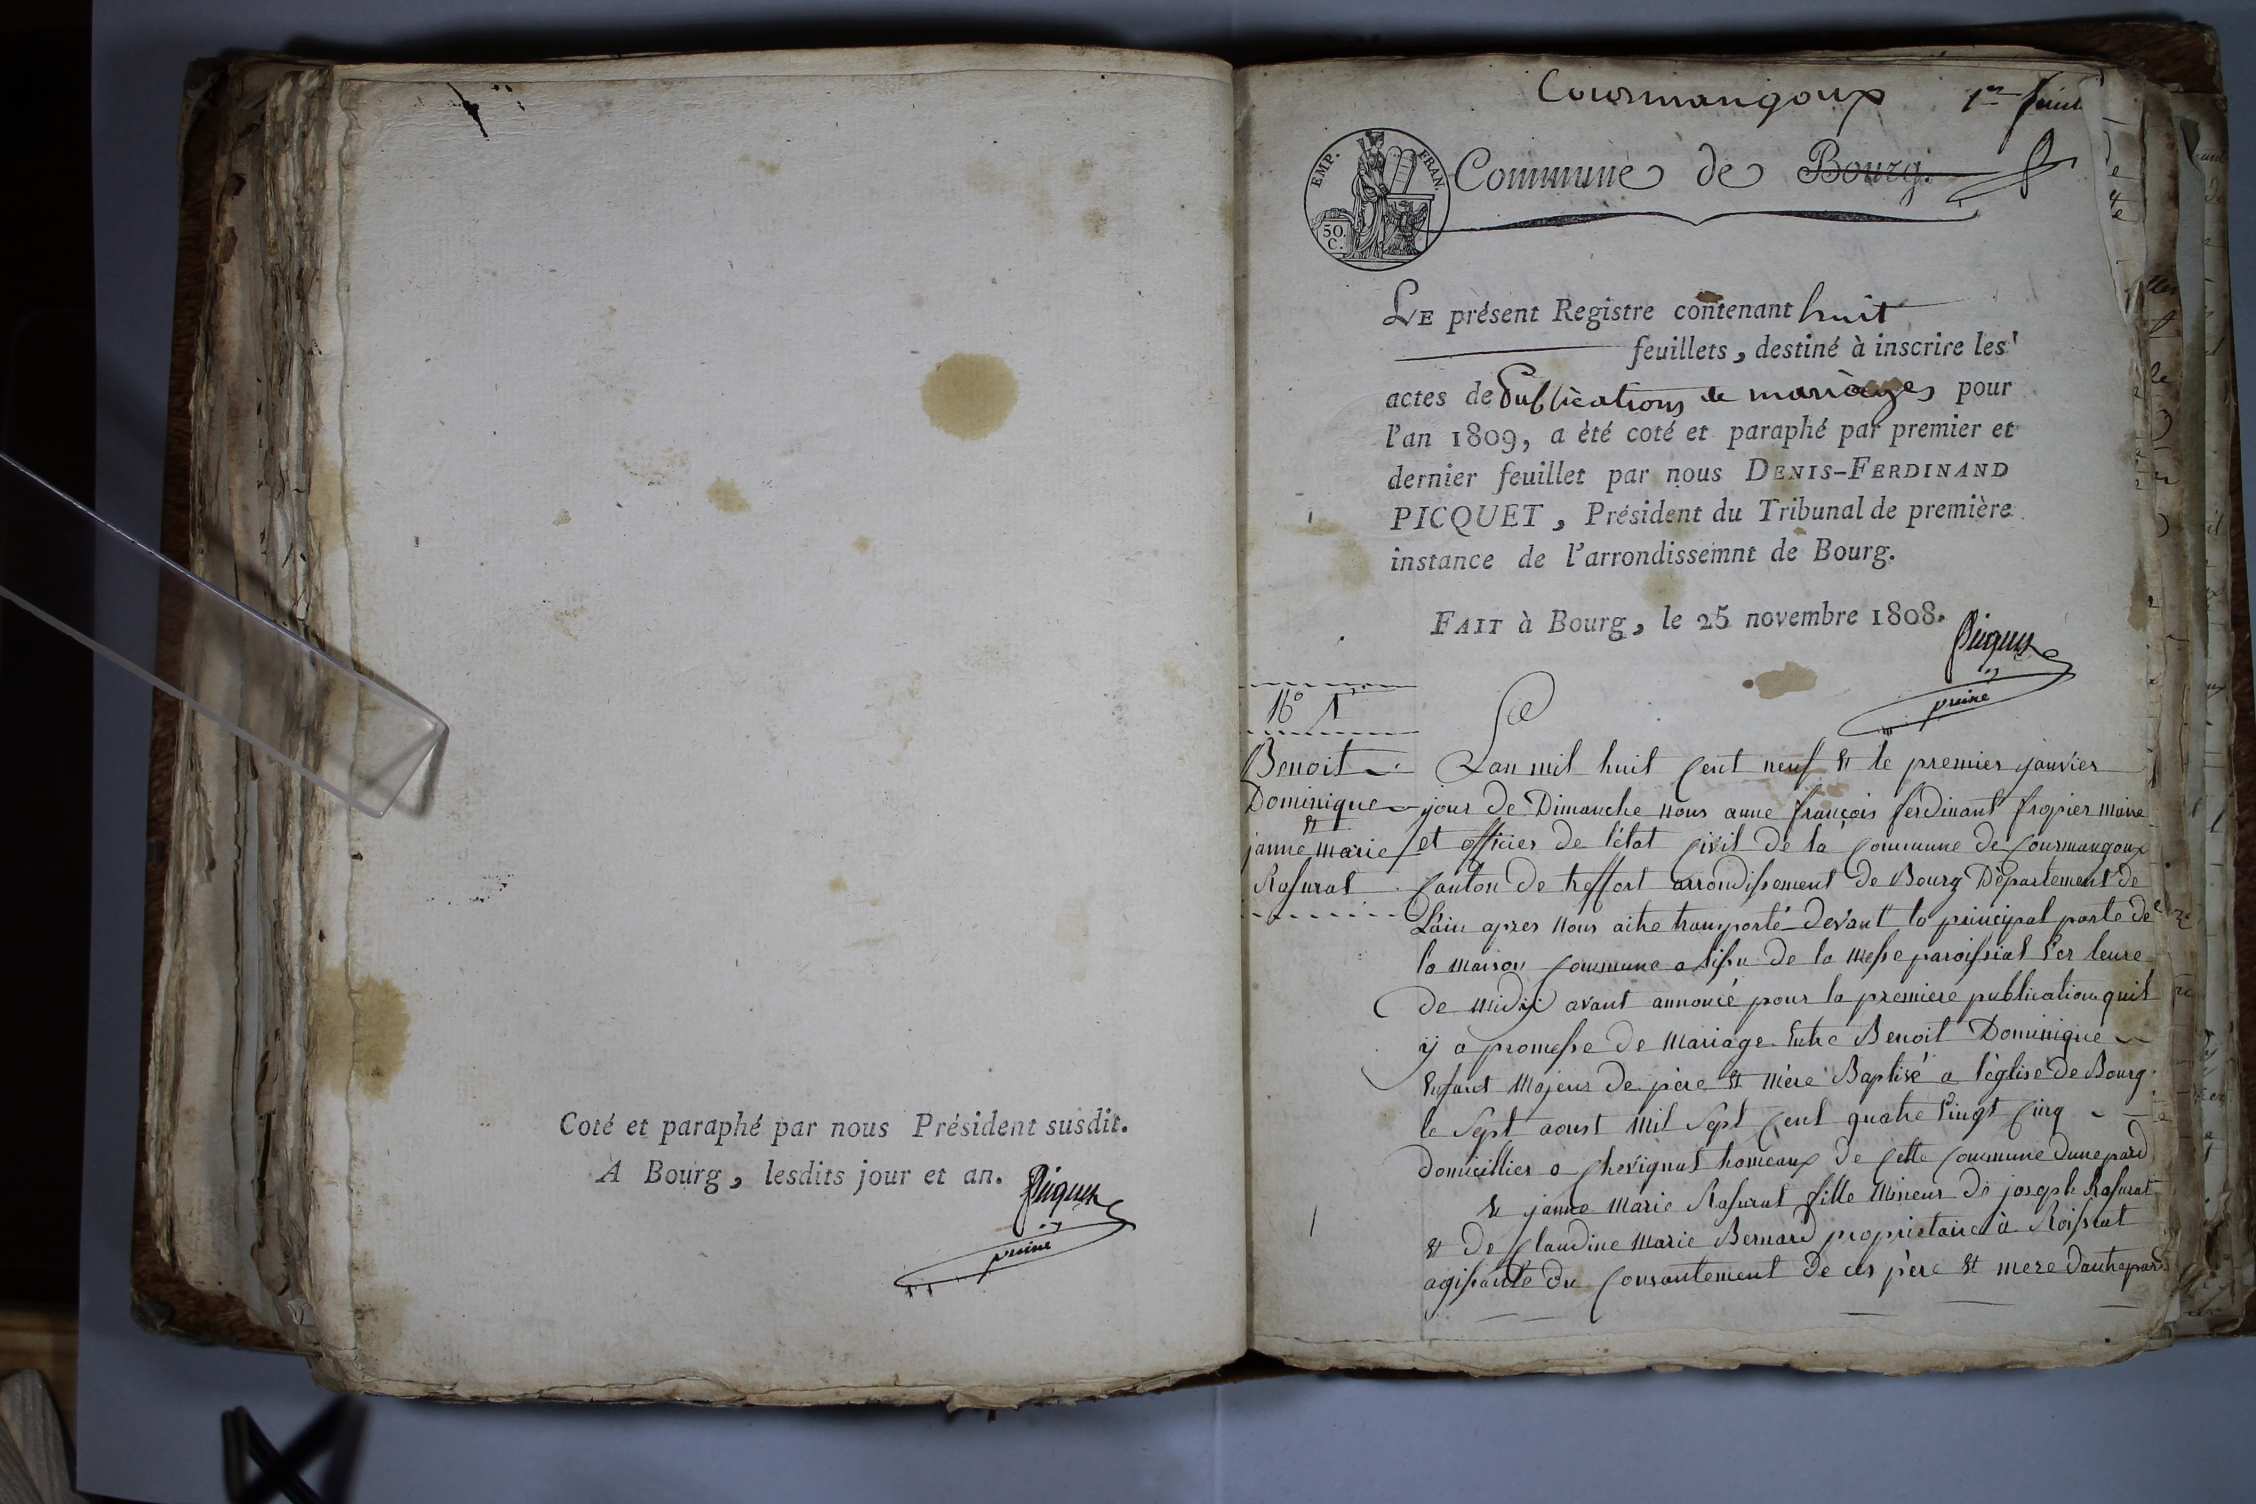 Coté et paraphé par nous Président susdit.
A Bourg, lesdits jour et an.
Picquet
Courmangoux
1er
EMP. FRAN.
50. C.
Commune de Bourg.
LE présent Registre contenant huit
feuillets, destiné à inscrire les
actes de Publications de mariages pour
l'an 1809, a été coté et paraphé par premier et
dernier feuillet par nous DENIS-FERDINAND
PICQUET, Président du Tribunal de première
instance de l'arrondissemnt de Bourg.
FAIT à Bourg, le 25 novembre 1808.
Picquet
No 1
Benoit
Dominique
et
janne marie
Rasurat
Lan mil huit Cent neuf et le premier janvier
jour de Dimanche nous anne françois ferdinant fropier maire
et officier de l'état Civil de la Commune de Courmangoux
Canton de treffort arrondissement de Bourg Département de
L'ain apres nous aitre transporté devant la principal porte de
la maison Commune a lissu de la messe paroissial ver leure
de midy avant annoncé pour la premiere publication quil
y a promesse de mariage Entre Benoit Dominique
Enfant majeur de père et mère Baptisé a l'église de Bourg
le Sept aoust mil Sept Cent quatre Vingt Cinq
domicillier a Chevignat hameaux de Cette Commune dunepard
et janne marie Rasurat fille mineur de joseph Rasurat
et de Claudine marie Bernard proprietaire à Roissiat
agissante du Consantement de ces père et mere dautrepard